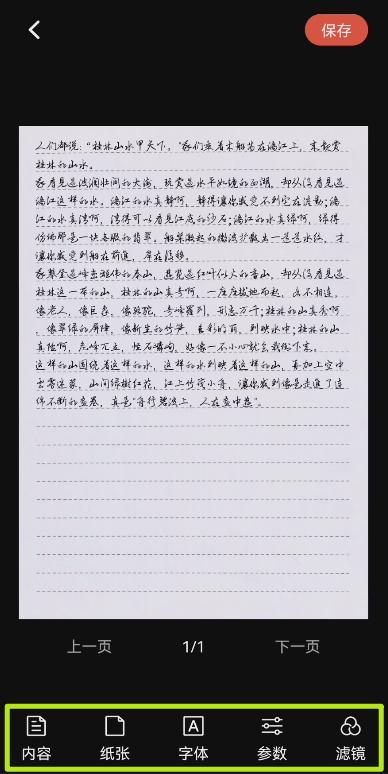 保存
人们都说："桂林山水甲天下。"我们乘着木船荡在漓江上，来观赏
桂林的山水。
我看见过波澜壮阔的大海，玩赏过水平如镜的西湖，却从没看见过
漓江这样的水。漓江的水真静啊，静得让你感觉不到它在流动；漓
江的水真清啊，清得可以看见江底的沙石；漓江的水真绿啊，绿得
仿佛那是一块无瑕的翡翠。船桨激起的微波扩散出一道道水纹，才
让你感觉到船在前进，岸在后移。
我攀登过峰峦雄伟的泰山，游览过红叶似火的香山，却从没看见过
桂林这一带的山。桂林的山真奇啊，一座座拔地而起，各不相连，
像老人，像巨象，像骆驼，奇峰罗列，形态万千；桂林的山真秀啊
，像翠绿的屏障，像新生的竹笋，色彩明丽，倒映水中；桂林的山
真险啊，危峰兀立，怪石嶙峋，好像一不小心就会栽倒下来。
这样的山围绕着这样的水，这样的水倒映着这样的山，再加上空中
云雾迷蒙，山间绿树红花，江上竹筏小舟，让你感到像是走进了连
绵不断的画卷，真是"舟行碧波上，人在画中游"。
上一页
1/1
下一页
内容
纸张
字体
参数
滤镜